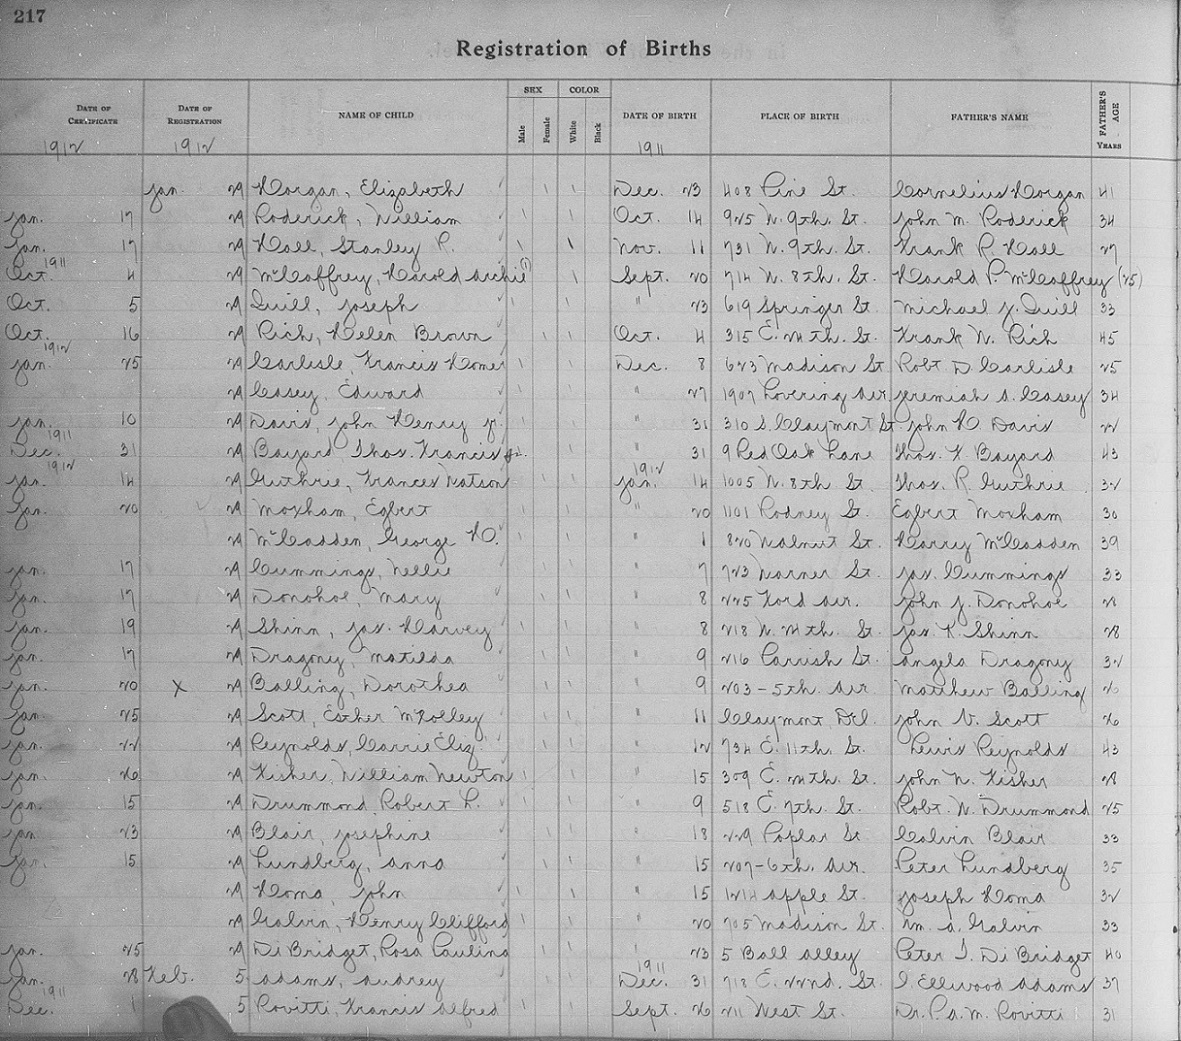 217
Registration of Births
DATE OF CERTIFICATE DATE OF REGISTRATION NAME OF CHILD SEX Male Female COLOR White Black DATE OF BIRTH PLACE OF BIRTH FATHER'S NAME FATHER'S AGE YEARS
1912 1912 1911
Jan. 29 Horgan, Elizabeth Dec. 23 408 Pine St. Cornelius Horgan 41
Jan. 17 29 Roderick, William Oct. 14 925 W. 9th. St. John M. Roderick 34
Jan. 17 29 Hall, Stanley R. Nov. 11 731 W. 9th. St. Frank R. Hall 27
1911
Oct. 4 29 McCaffrey, Harold Archie (1) Sept. 20 714 W. 8th. St. Harold P. McCaffrey (25)
Oct. 5 29 Quill, Joseph " 23 619 Springer St. Michael J. Quill 33
Oct. 16 29 Rich, Helen Brown Oct. 4 315 E. 24th. St. Frank W. Rich 45
1912
Jan. 25 29 Carlisle, Francis Homer Dec. 8 623 Madison St Robt D Carlisle 25
29 Casey, Edward " 27 1907 Lovering Av Jeremiah A. Casey 34
Jan. 10 29 Davis, John Henry Jr. " 31 310 S. Claymont St. John H. Davis 22
1911
Dec. 31 29 Bayard Thos. Francis Jr. " 31 9 Red Oak Lane Thos. F. Bayard 43
1912 1912
Jan. 14 29 Guthrie, Frances Watson Jan. 14 1005 W. 8th St. Thos. R. Guthrie 32
Jan. 20 29 Moxham, Egbert " 20 1101 Rodney St. Egbert Moxham 30
29 McCadden, George H. " 1 820 Walnut St. Harry McCadden 39
Jan. 17 29 Cummings, Nellie " 7 723 Warner St. Jas. Cummings 33
Jan. 17 29 Donohoe, Mary " 8 225 Ford Av. John J. Donohoe 28
Jan. 19 29 Shinn, Jas. Harvey " 8 218 W. 24th. St. Jas. K. Shinn 28
Jan. 17 29 Dragony, Matilda " 9 216 Parrish St. Angela Dragony 32
Jan. 20 X 29 Balling, Dorothea " 9 203-5th. Av Matthew Balling 26
Jan. 25 29 Scott, Esther McColley " 11 Claymont Del. John V. Scott 26
Jan. 22 29 Reynolds, Carrie Eliz. " 12 734 E. 11th. St. Lewis Reynolds 43
Jan. 26 29 Fisher, William Newton " 15 309 E. 24th. St. John N. Fisher 28
Jan. 15 29 Drummond Robert L. " 9 518 E. 7th. St. Robt. W. Drummond 25
Jan. 23 29 Blair, Josephine " 18 229 Poplar St. Calvin Blair 33
Jan. 15 29 Lundberg, Anna " 15 207-6th. Av. Peter Lundberg 35
29 Homa, John " 15 1214 Apple St. Joseph Homa 32
29 Galvin, Henry Clifford " 20 705 Madison St. Wm. A. Galvin 33
Jan. 25 29 Di Bridget, Rosa Paulina " 23 5 Ball Alley Peter Di Bridget 40
1911
Jan. 28 Feb. 5 Adams, Audrey Dec. 31 718 E. 22nd. St. Ellwood Adams 37
1911
Dec. 1 5 Rovitti, Francis Alfred Sept. 26 211 West St. Dr. P. A. M. Rovitti 31